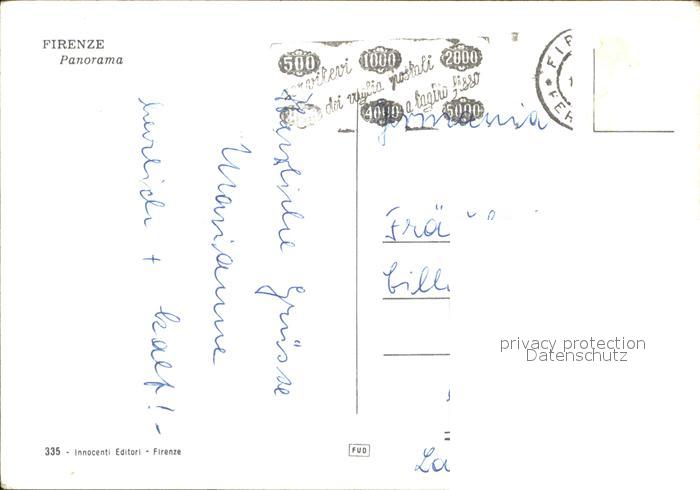 FIRENZE
Panorama
500 1000 2000
servitevi
dei vaglia postali
a taglio fisso
4000 5000
FIR
Germania
Frä
Bill
La
Herzliche Grüsse
Marianne
herrlich + kalt! -
privacy protection
Datenschutz
335 - Innocenti Editori - Firenze
FUD